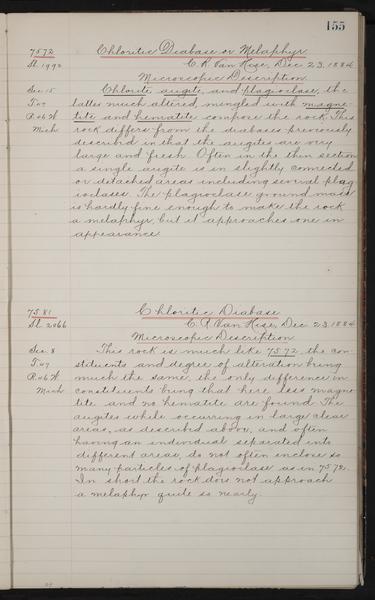 155
7572 Chloritic Diabase or Melaphyr
Sl. 1992 C. R. Van Hise, Dec. 23, 1884
Microscopic Description
Sec. 15 Chlorite, augite, and plagioclase, the
T. 47 latter much altered, mingled with magne-
R. 46 W tite and hematite compose the rock. This
Mich rock differs from the diabases previously
described in that the augites are very
large and fresh. Often in the thin section
a single augite is in slightly connected
or detached areas including several plag-
ioclases. The plagioclase ground mass
is hardly fine enough to make the rock
a melaphyr but it approaches one in
appearance
7581 Chloritic Diabase
Sl. 2066 C. R. Van Hise, Dec. 23, 1884
Microscopic Description
Sec. 8 This rock is much like 7572, the con-
T. 47 stituents and degree of alteration being
R. 46 W much the same, the only difference in
Mich constituents being that here less magne-
tite and no hematite are found. The
augites while occurring in large clear
areas, as described above, and often
having an individual separated into
different areas, do not often enclose so
many particles of plagioclase as in 7572.
In short the rock does not approach
a melaphyr quite so nearly.